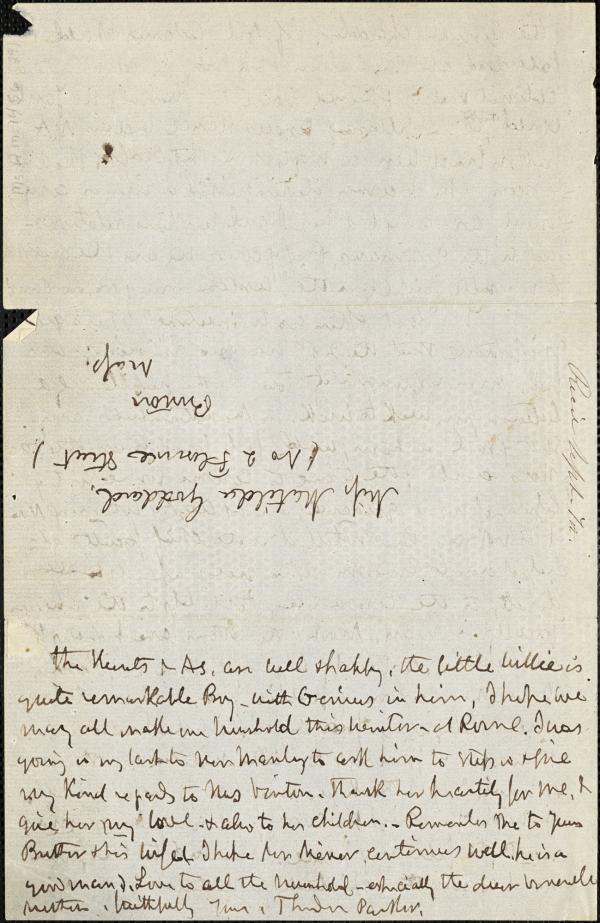 Miss Matilda Goddard,
(No 2 Florence Street)
Boston
Mass.
Recd Sept. 
The Hunts & As. are well & happy, the little Willie is
quite remarkable Boy - with Genius in him, I hope we
may all make one household this winter - at Rome. I was
going in my last to Mr Manley to ask him to step in & give
my Kind regards to Mrs Vinton. Thank her heartily for me, &
give her my love - & also to her children. - Remember me to your
Brother & his wife. I hope Mr continues well, he is a
good man. Love to all the household - especially the dear venerable
mother. faithfully Yours, Theodore Parker.